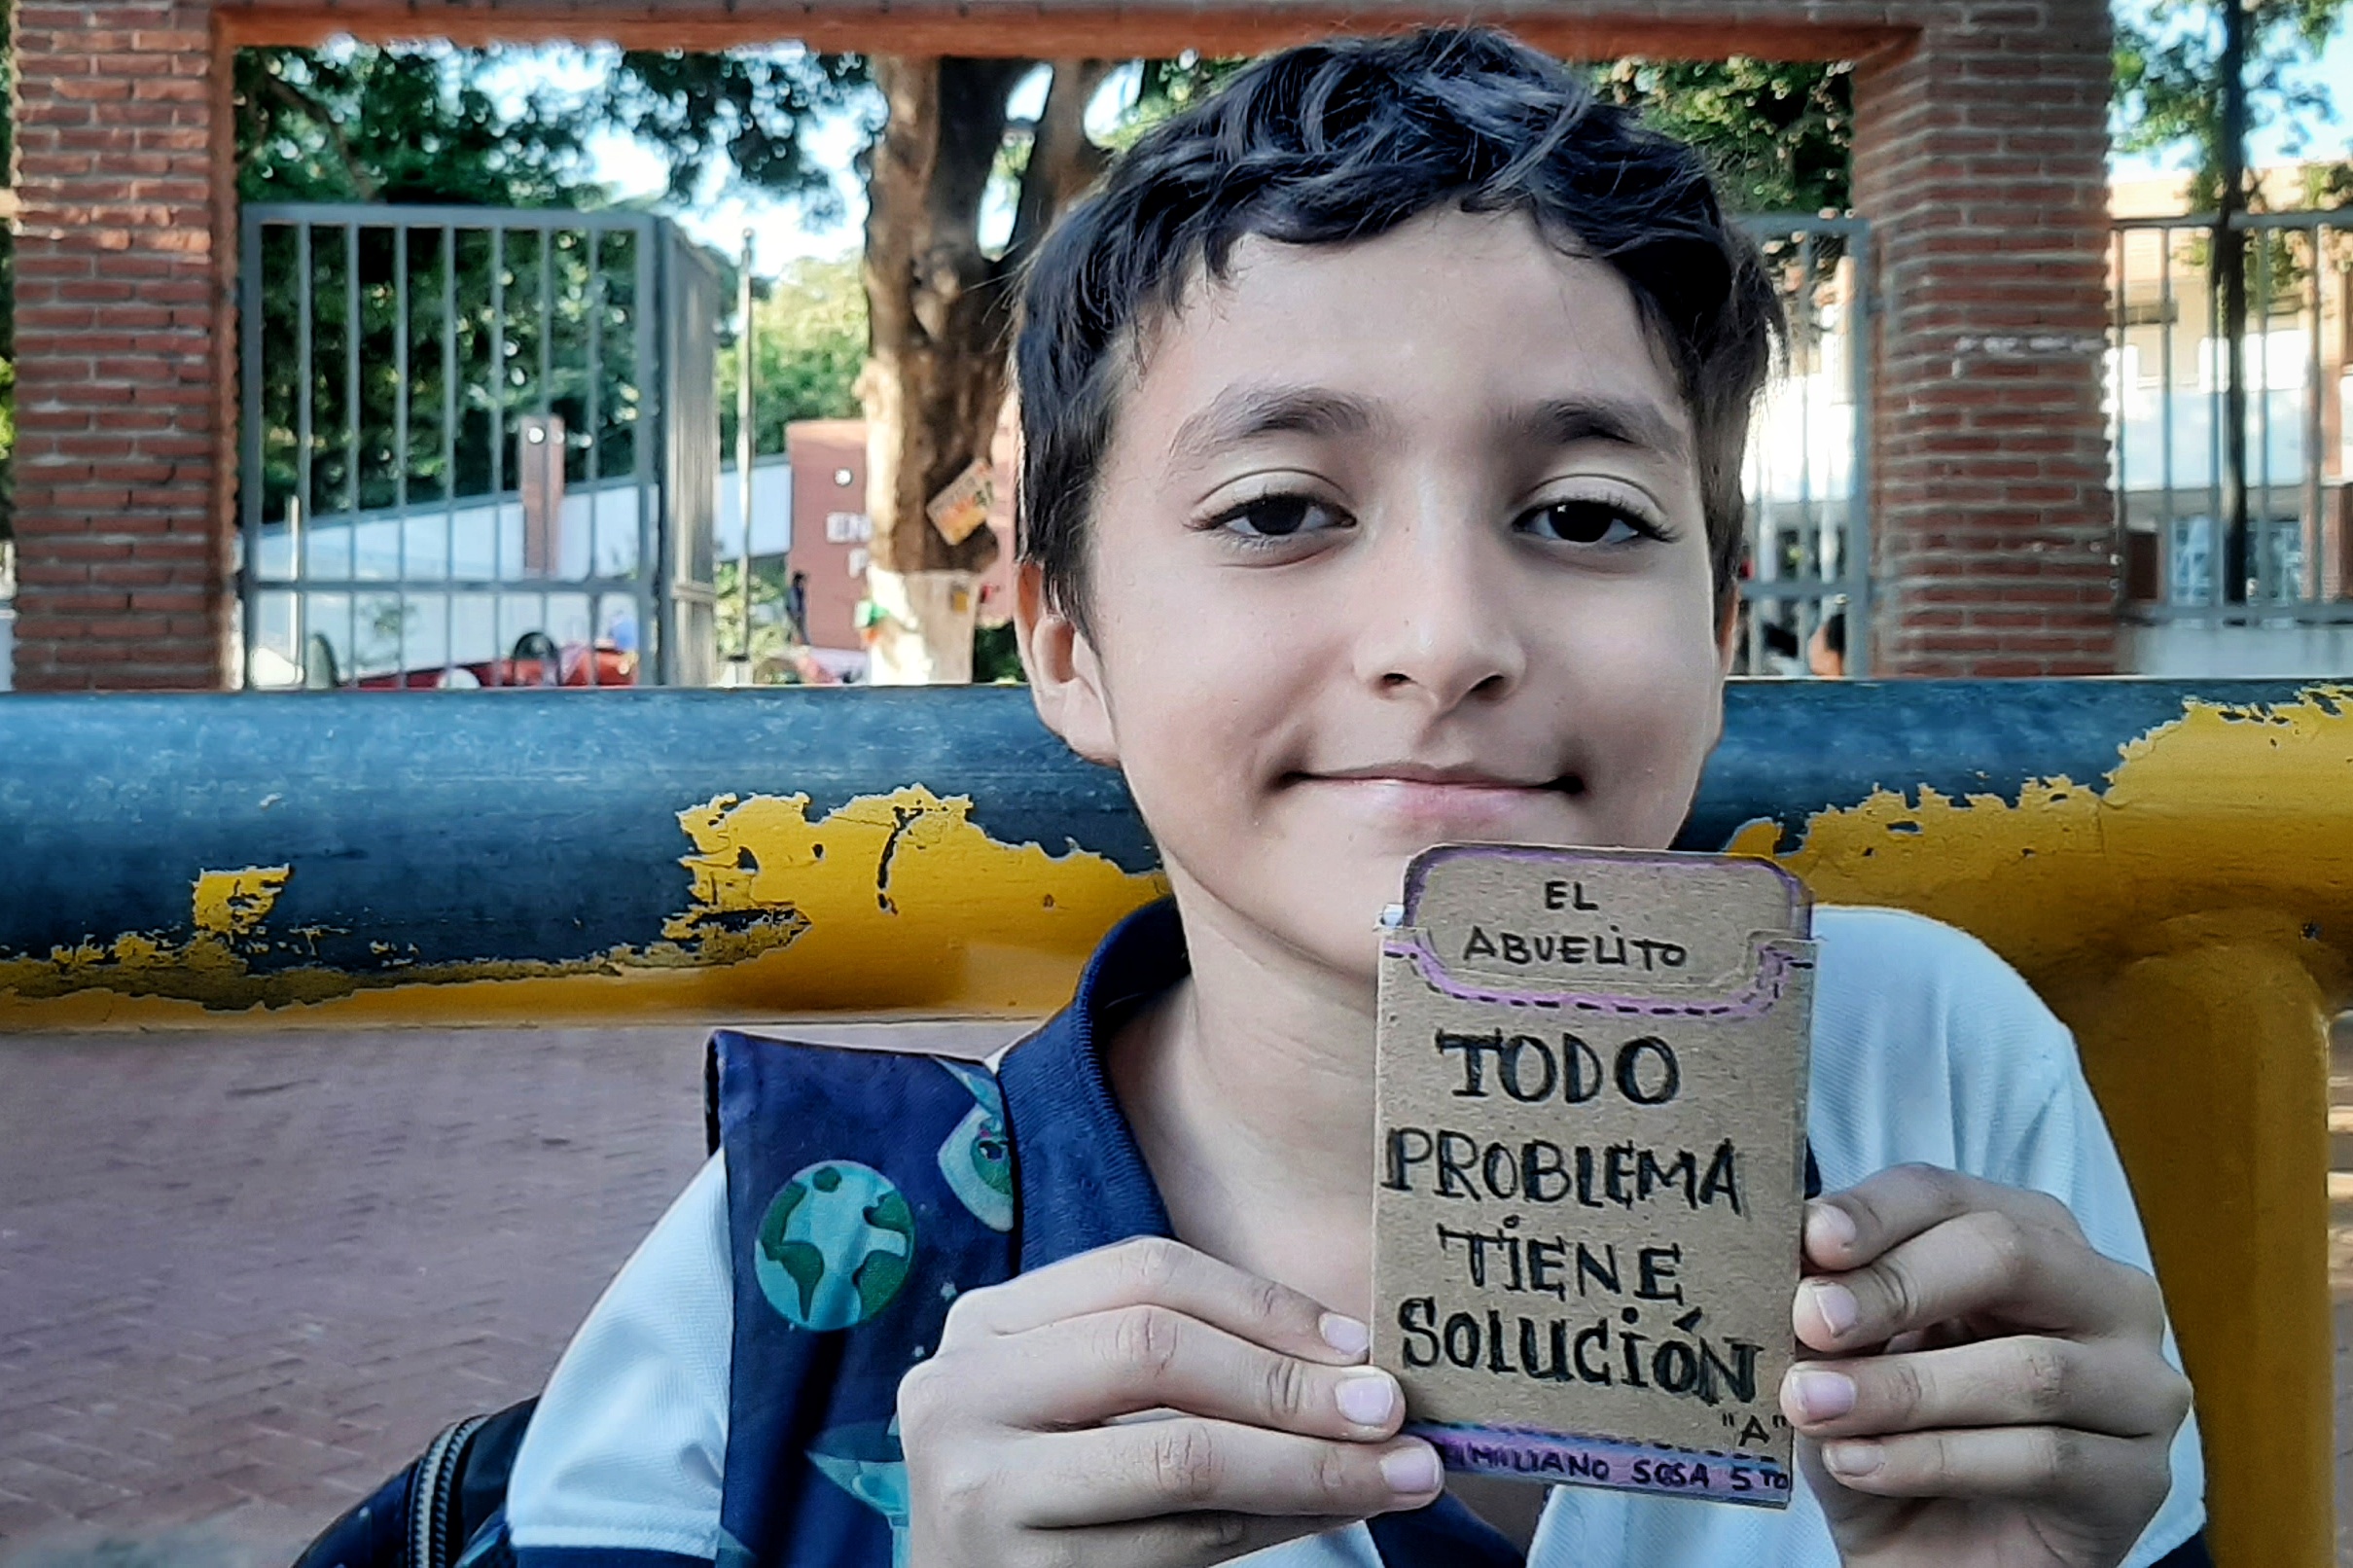 EL
ABUELITO
TODO
PROBLEMA
TIENE
SOLUCIÓN
"A"
EMILIANO SOSA 5TO